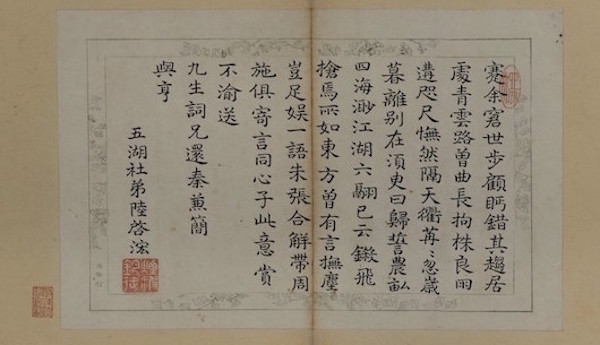 蹇余窘世步顧眄錯其趨居
處青雲路曾曲長拘株良雨
遘咫尺憮然隔天衢苒〻忽歲
暮離别在須臾曰歸誓農畝
四海渺江湖六翮已云鎩飛
搶焉所如東方曾有言撫塵
豈足娱一語朱張合解帶周
施俱寄言同心子此意賞
不渝送
九生詞兄還秦蒹簡
與亨
五湖社弟陸啓浤